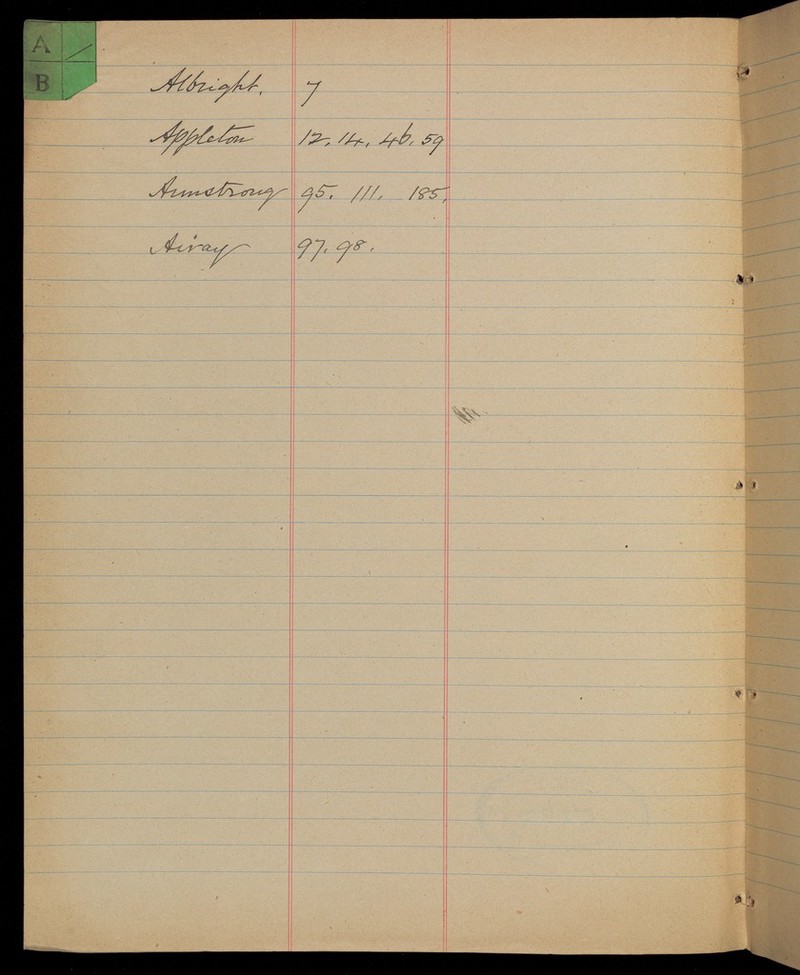 A
B
Albright. 7
Appleton 12. 14. 46. 59
Armstrong 95. 111. 185.
Airay 97. 98.